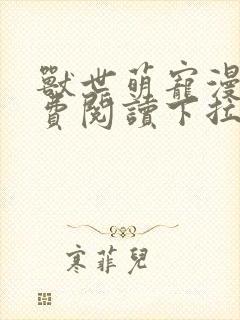 獸世萌寵漫
費閱讀下拉
寒菲兒